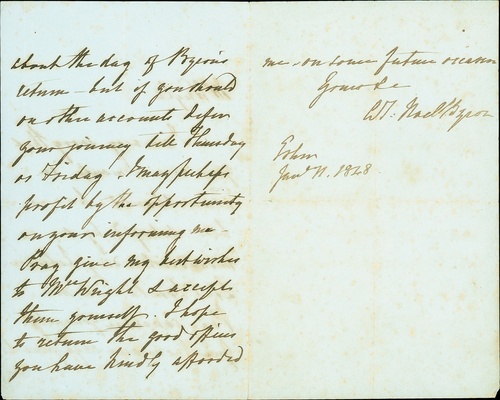 about the day of Byron's
return - but if you should
on other accounts defer
your journey till Thursday
or Friday, I may perhaps
profit by the opportunity
on your informing me -
Pray give my best wishes
to Mrs Wright & accept
them yourself. I hope
to return the good offices
you have kindly afforded
me - on some future occasion
Yours &c
Noel Byron
Esher
Jany 11. 1828.